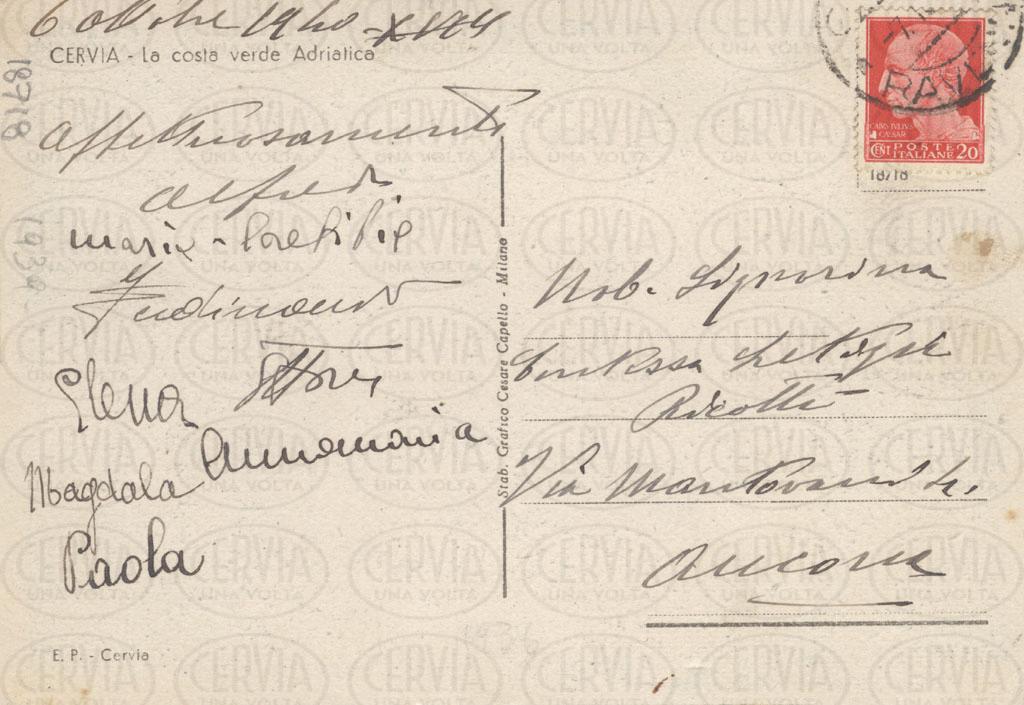 6 ottobre 1940 - XVIII
CERVIA - La costa verde Adriatica
18718
Affettuosamente
Alfredo
Maria - Letizia
Ferdinando
Elena
Annamaria
Magdala
Paola
1939
E. P. - Cervia
Stab. Grafico Cesare Capello - Milano
CAIVS IVLIVS
CAESAR
CENT POSTE ITALIANE 20
18718
Nob. Signorina
Contessa Letizia
Ricotti
Via Mantovani
Ancona
CERVIA
UNA VOLTA